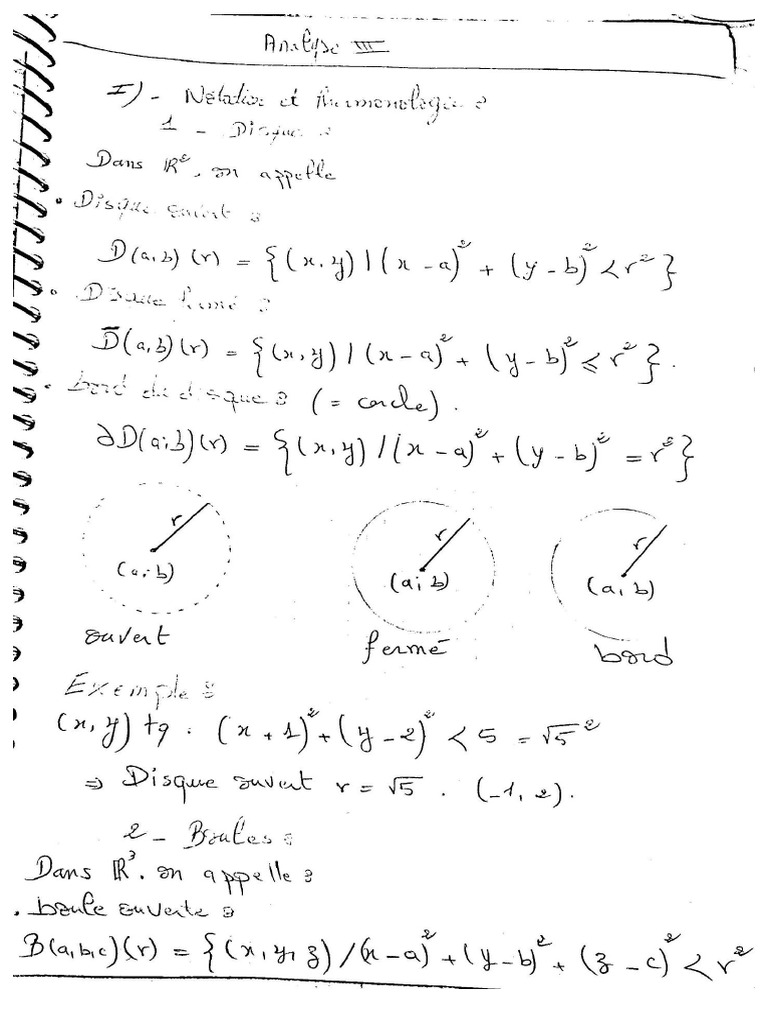 Analyse III
I) - Notation et thermonologie :
1 - Disque :
Dans ℝ², on appelle
• Disque ouvert :
D(a,b)(r) = {(x,y) / (x-a)² + (y-b)² < r²}
• Disque fermé :
D̄(a,b)(r) = {(x,y) / (x-a)² + (y-b)² ≤ r²}.
• bord du disque : (= cercle).
∂D(a,b)(r) = {(x,y) / (x-a)² + (y-b)² = r²}
r r r
(a,b) (a,b) (a,b)
ouvert fermé bord
Exemple :
(x,y) tq . (x+1)² + (y-2)² < 5 = √5²
⇒ Disque ouvert r = √5 . (-1, 2).
2 - Boules :
Dans ℝ³. on appelle :
. boule ouverte :
B(a,b,c)(r) = {(x,y,z) / (x-a)² + (y-b)² + (z-c)² < r²